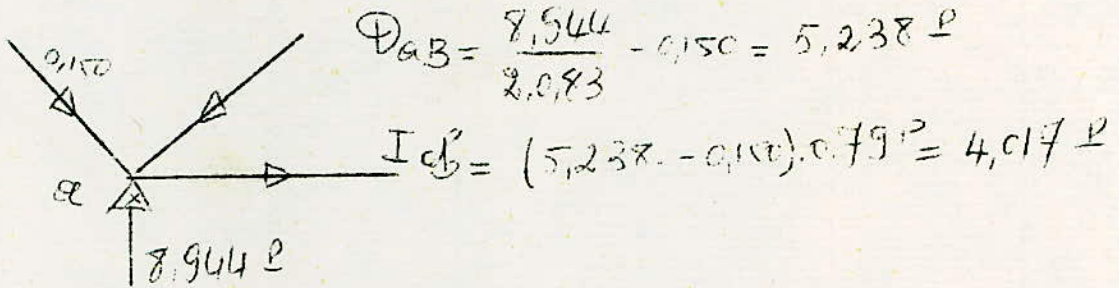 D_aB = 8,944 / 2.0,83 - 0,150 = 5,238 P
0,150
I_cB = (5,238 - 0,150).0.79 P = 4,017 P
a
8,944 P